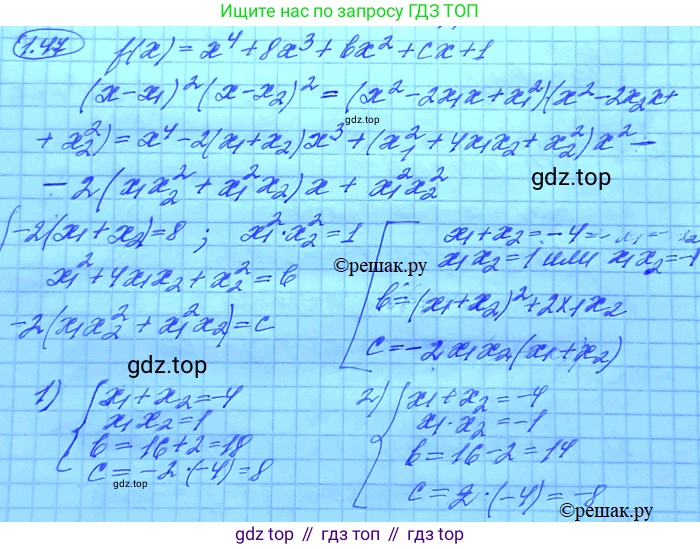 Ищите нас по запросу ГДЗ ТОП
1.47
f(x) = x⁴ + 8x³ + bx² + cx + 1
(x - x₁)² (x - x₂)² = (x² - 2x₁x + x₁²)(x² - 2x₂x +
+ x₂²) = x⁴ - 2(x₁ + x₂)x³ + (x₁² + 4x₁x₂ + x₂²)x² -
- 2(x₁x₂² + x₁²x₂)x + x₁²x₂²
gdz.top
-2(x₁ + x₂) = 8 ; x₁² · x₂² = 1
x₁² + 4x₁x₂ + x₂² = b
-2(x₁x₂² + x₁²x₂) = c
x₁ + x₂ = -4
x₁x₂ = 1 или x₁x₂ = -1
b = (x₁ + x₂)² + 2x₁x₂
c = -2x₁x₂(x₁ + x₂)
©решак.ру
gdz.top
1) { x₁ + x₂ = -4
x₁x₂ = 1
b = 16 + 2 = 18
c = -2 · (-4) = 8
2) { x₁ + x₂ = -4
x₁ · x₂ = -1
b = 16 - 2 = 14
c = 2 · (-4) = -8
gdz.top
©решак.ру
gdz.top // гдз.топ // гдз.top